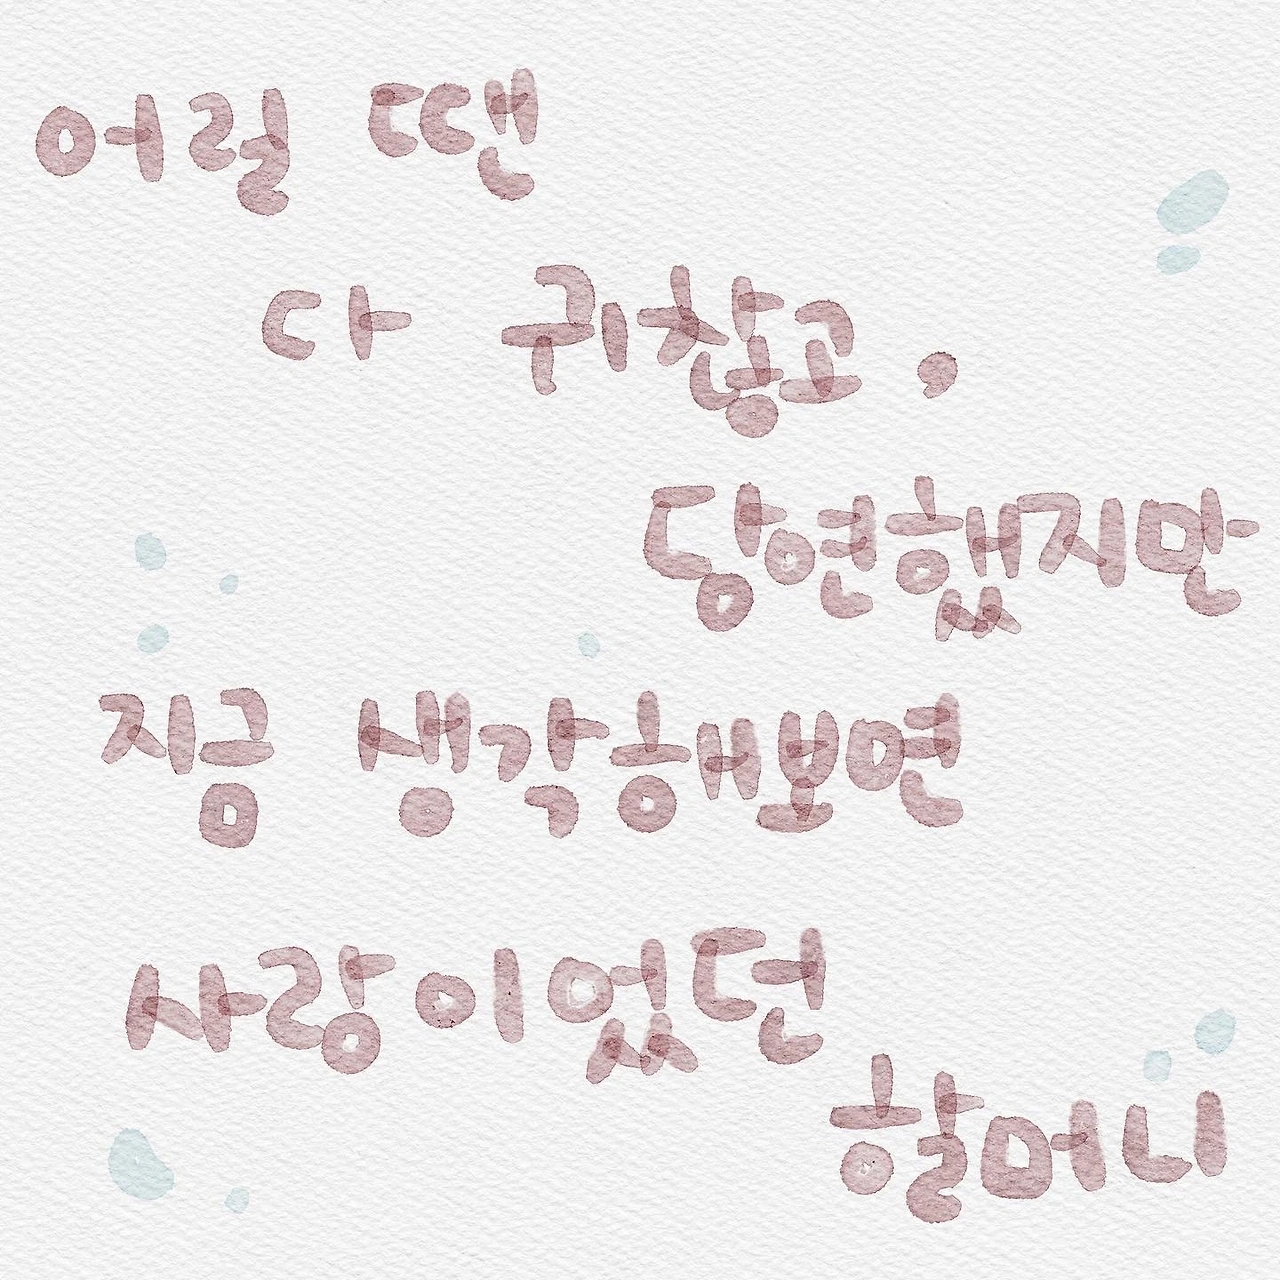 어릴 땐
다 귀찮고,
당연했지만
지금 생각해보면
사랑이었던
할머니